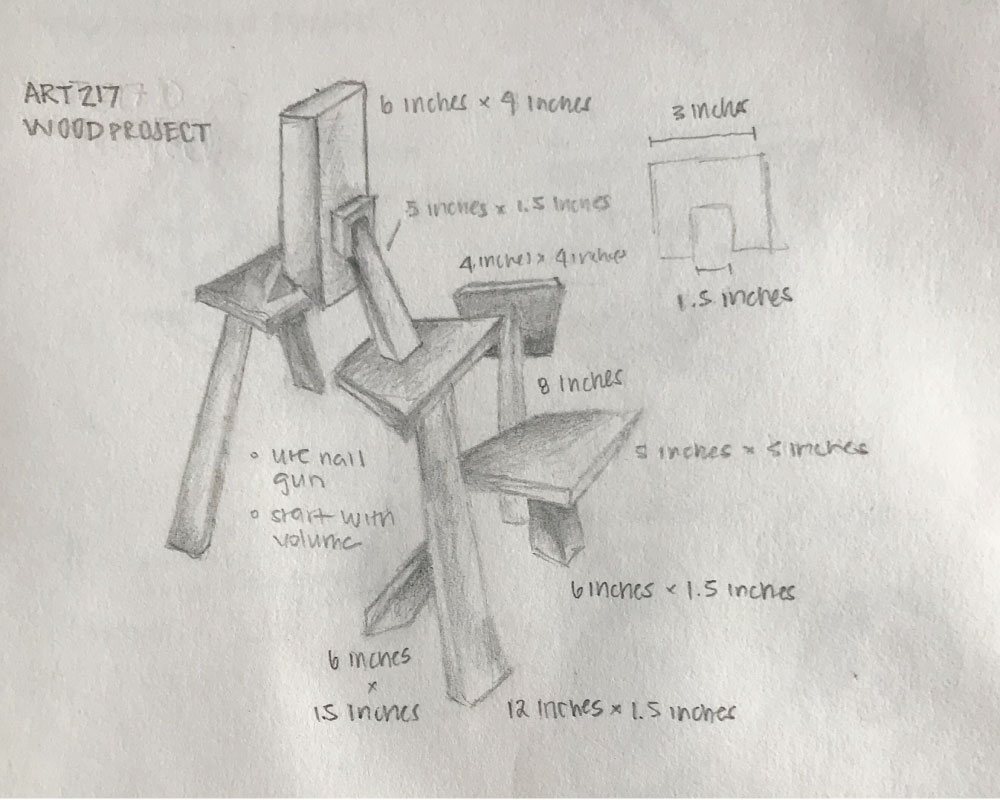 ART 217
WOOD PROJECT
6 inches × 4 inches
3 inches
5 inches × 1.5 inches
4 inches × 4 inches
1.5 inches
8 inches
5 inches × 5 inches
• use nail
gun
• start with
volume
6 inches × 1.5 inches
6 inches
×
1.5 inches
12 inches × 1.5 inches